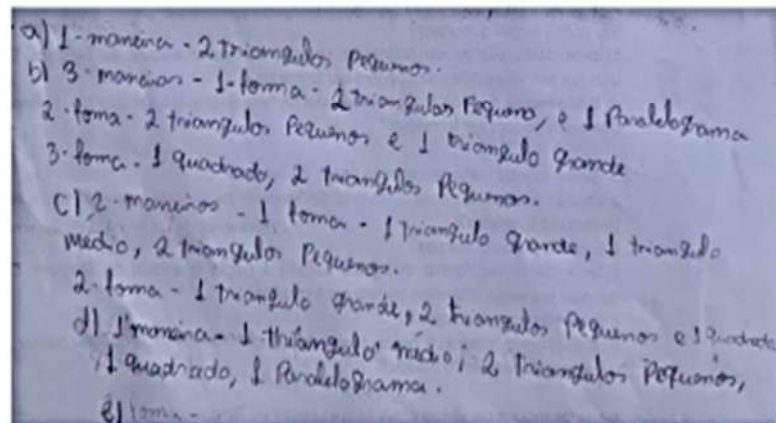 a) 1-maneira - 2 triangulos Pequenos.
b) 3-maneiras - 1-forma - 2 triangulos Pequeno, e 1 Paralelograma
2-forma - 2 triangulos Pequenos e 1 triangulo grande
3-forma - 1 quadrado, 2 triangulos Pequenos.
C) 2-maneiras - 1 forma - 1 triangulo grande, 1 triangulo
medio, 2 triangulos Pequenos.
2-forma - 1 triangulo grande, 2 triangulos Pequenos e 1 quadrado
d) 1 maneira - 1 thiangulo medio, 2 triangulos Pequenos,
1 quadrado, 1 Paralelograma.
e) forma -